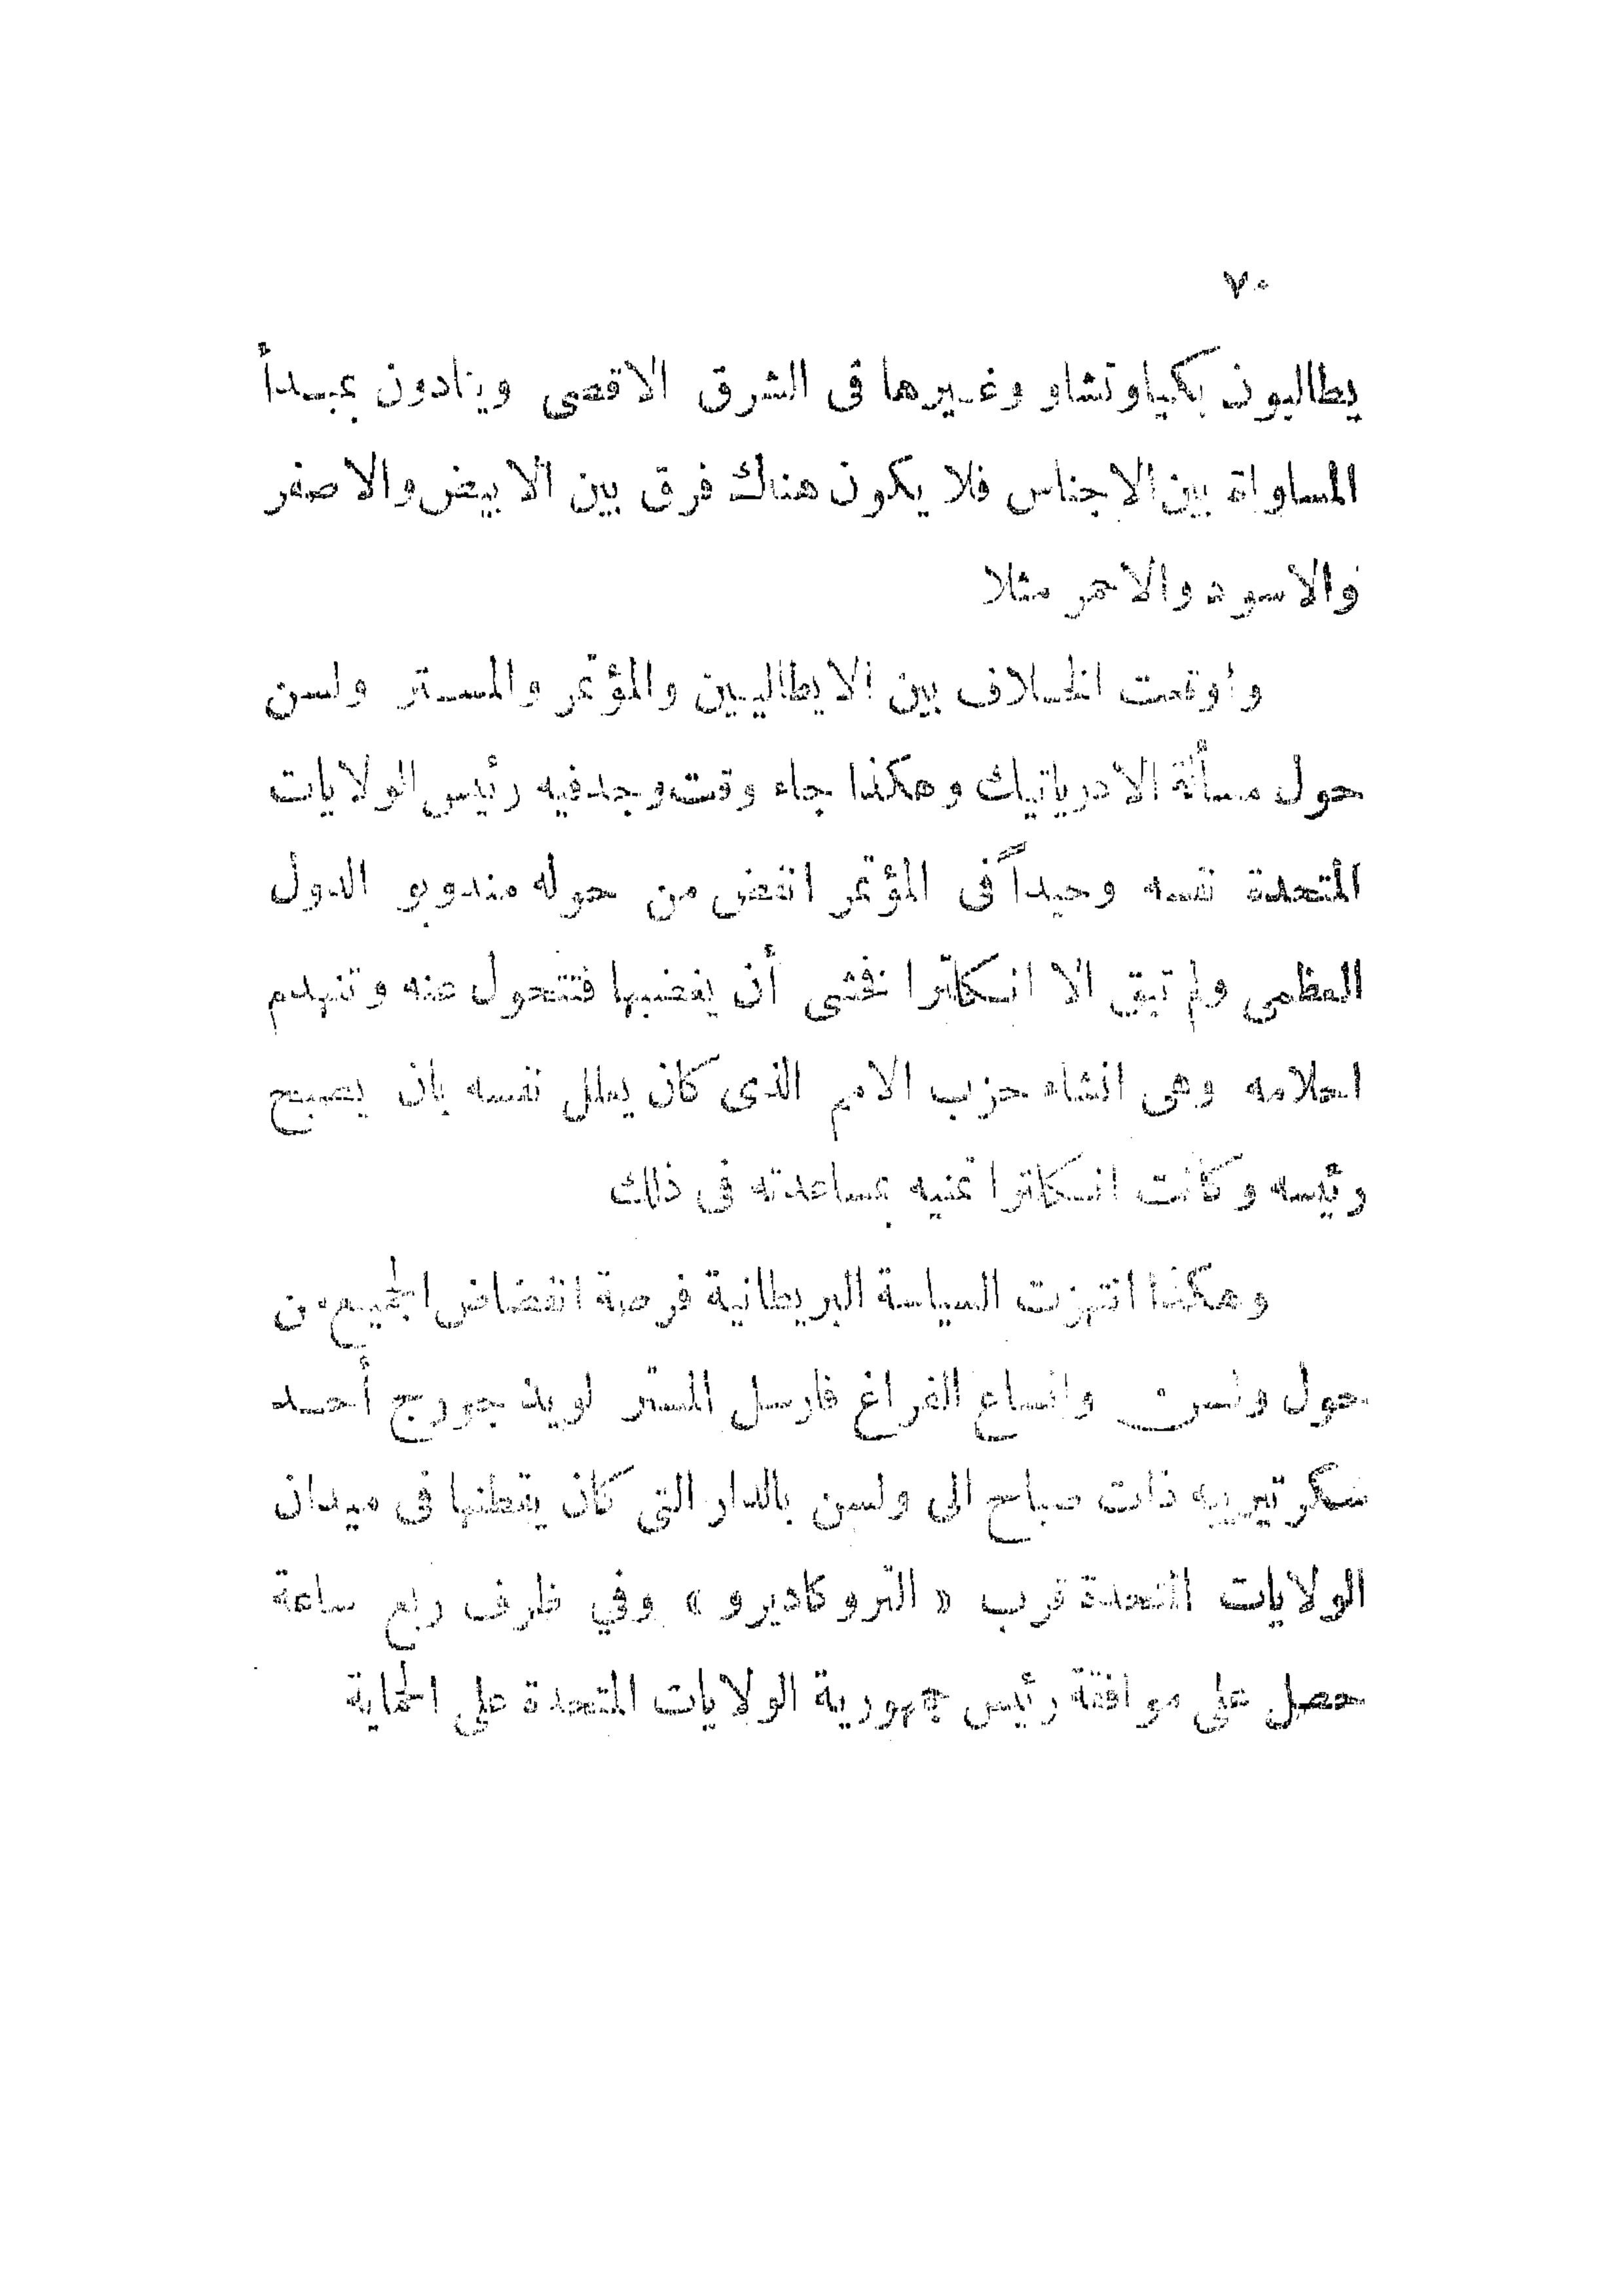 ٧٠
يطالبون بكياوتشاو وغيرها فى الشرق الاقصى وينادون بمبدأ
المساواة بين الاجناس فلا يكون هناك فرق بين الابيض والاصفر
والاسود والاحمر مثلا
واوقعت الخلاف بين الايطاليين والمؤتمر والمستر ولسن
حول مسألة الادرياتيك وهكذا جاء وقت وجد فيه رئيس الولايات
المتحدة نفسه وحيداً فى المؤتمر انفض من حوله مندوبو الدول
العظمى ولم تبق الا انكلترا فخشى أن يغضبها فتتحول عنه وتنهدم
احلامه وهى انشاء حزب الامم الذى كان يعلل نفسه بان يصبح
رئيسه وكانت انكلترا تمنيه بمساعدته فى ذلك
وهكذا انتهزت السياسة البريطانية فرصة انفضاض الجميع من
حول ولسن واتساع الفراغ فارسل المستر لويد جورج أحد
سكرتيريه ذات صباح الى ولسن بالدار التى كان يقطنها فى ميدان
الولايات المتحدة قرب « التروكاديرو » وفي ظرف ربع ساعة
حصل على موافقة رئيس جمهورية الولايات المتحدة على الحماية